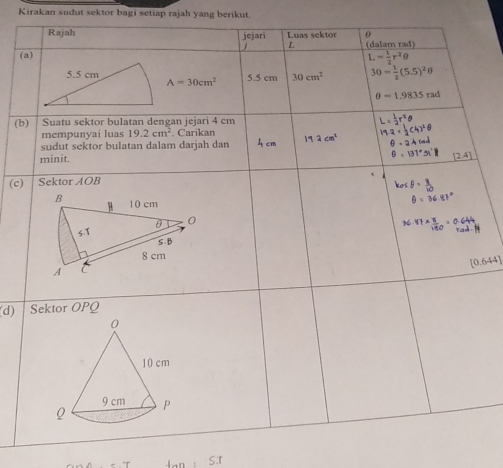 Kirakan sudut sektor bagi setiap rajah yang berikut.
Rajah
jejari
j
Luas sektor
L
θ
(dalam rad)
(a)
5.5 cm
A = 30cm²
5.5 cm
30 cm²
L = ½r²θ
30 = ½(5.5)²θ
θ = 1.9835 rad
(b) Suatu sektor bulatan dengan jejari 4 cm
mempunyai luas 19.2 cm². Carikan
sudut sektor bulatan dalam darjah dan
minit.
4 cm
19.2 cm²
L = ½r²θ
19.2 = ½(4)²θ
θ = 2.4 rad
θ = 137°31'
[2.4]
(c) Sektor AOB
B
10 cm
θ
O
S.T
S.B
8 cm
A
C
kos θ = 8/10
θ = 36.87°
36.87 × π/180 = 0.644
rad
[0.644]
(d) Sektor OPQ
O
10 cm
9 cm
Q
P
S.T
tan
S.T